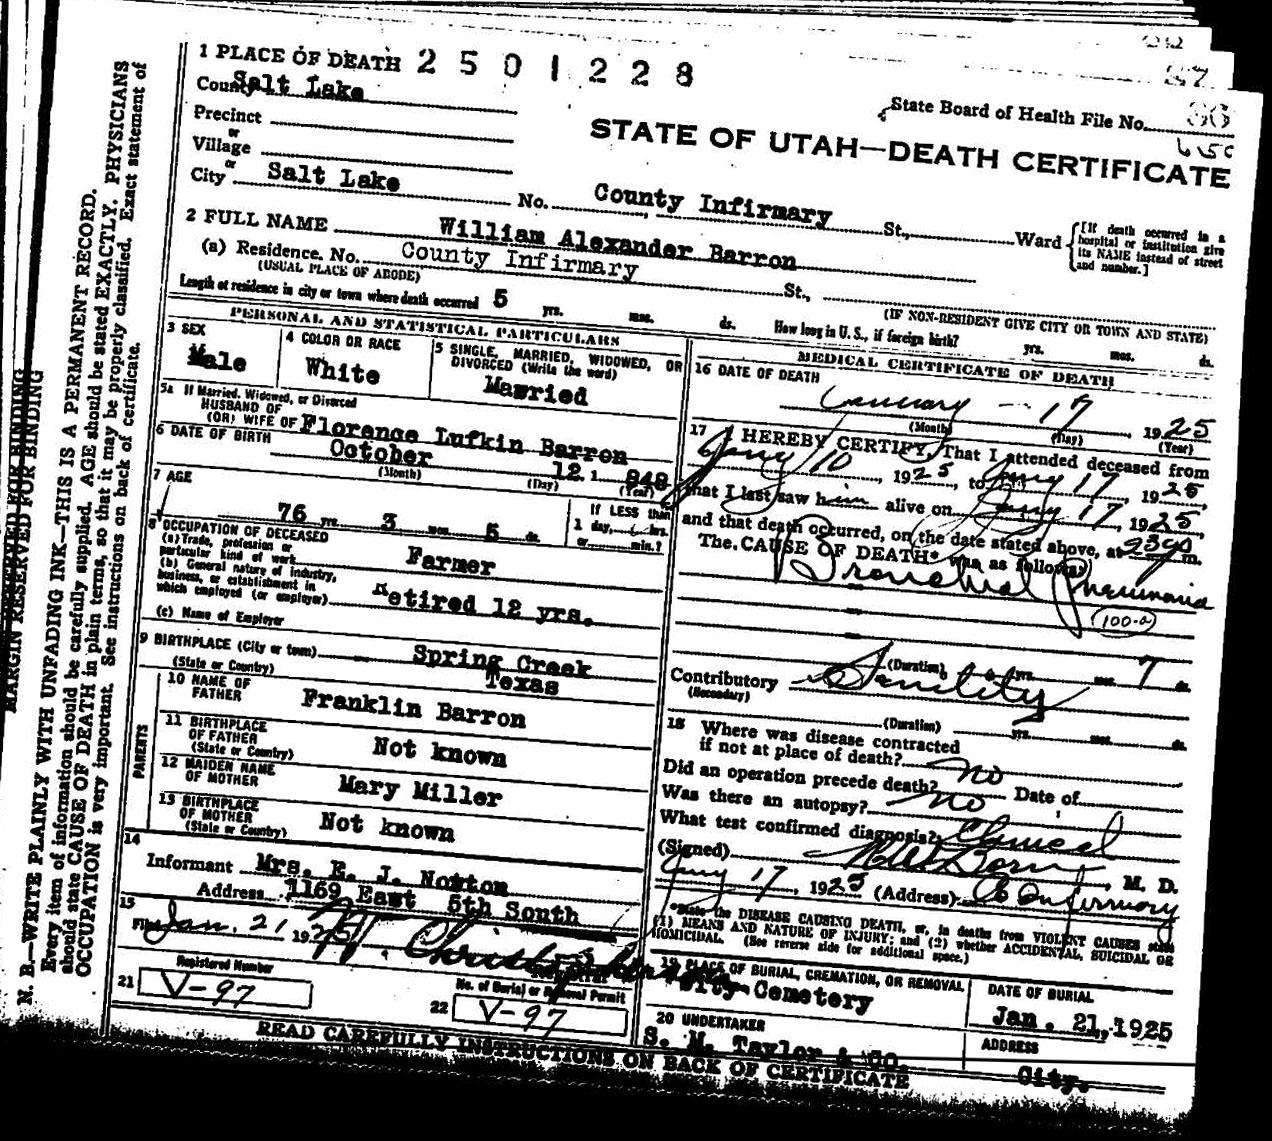 1 PLACE OF DEATH 2 5 0 1 2 2 8
County Salt Lake
State Board of Health File No. 86
Precinct
or
Village
or
City Salt Lake No. County Infirmary St., Ward
STATE OF UTAH—DEATH CERTIFICATE
[If death occurred in a
hospital or institution give
its NAME instead of street
and number.]
2 FULL NAME William Alexander Barron
(a) Residence. No. County Infirmary St.,
(USUAL PLACE OF ABODE)
(IF NON-RESIDENT GIVE CITY OR TOWN AND STATE)
Length of residence in city or town where death occurred 5 yrs. mos. ds. How long in U. S., if foreign birth? yrs. mos. ds.
PERSONAL AND STATISTICAL PARTICULARS
3 SEX
Male
4 COLOR OR RACE
White
5 SINGLE, MARRIED, WIDOWED, OR
DIVORCED (Write the word)
Mawried
5a If Married, Widowed, or Divorced
HUSBAND OF
(OR) WIFE OF Florence Lufkin Barron
6 DATE OF BIRTH October 12. 1 848
(Month) (Day) (Year)
7 AGE
76 yrs. 3 mos. 5 ds.
If LESS than
1 day, hrs.
or min.?
8 OCCUPATION OF DECEASED
(a) Trade, profession or
particular kind of work Farmer
(b) General nature of industry,
business, or establishment in
which employed (or employer) Retired 12 yrs.
(c) Name of Employer
9 BIRTHPLACE (City or town) Spring Creek
(State or Country) Texas
PARENTS
10 NAME OF
FATHER Franklin Barron
11 BIRTHPLACE
OF FATHER
(State or Country) Not known
12 MAIDEN NAME
OF MOTHER Mary Miller
13 BIRTHPLACE
OF MOTHER
(State or Country) Not known
14
Informant Mrs. E. J. Norton
Address 1169 East 5th South
15
Filed Jan. 21 1925 Christopherson
Registrar
Registered Number
21 V-97
No. of Burial or Removal Permit
22 V-97
MEDICAL CERTIFICATE OF DEATH
16 DATE OF DEATH
January - 17, 1925
(Month) (Day) (Year)
17 I HEREBY CERTIFY, That I attended deceased from
Jany 10, 1925, to Jany 17, 1925,
that I last saw him alive on Jany 17, 1925,
and that death occurred, on the date stated above, at m.
The CAUSE OF DEATH* was as follows:
Bronchial Pneumonia
100-a
(Duration) yrs. mos. 7 ds.
Contributory Senility
(Secondary)
(Duration) yrs. mos. ds.
18 Where was disease contracted
if not at place of death?
Did an operation precede death? no Date of
Was there an autopsy? no
What test confirmed diagnosis? Clinical
(Signed) M. D.
Jany 17, 1925 (Address) Co Infirmary
*State the DISEASE CAUSING DEATH, or, in deaths from VIOLENT CAUSES state
(1) MEANS AND NATURE OF INJURY; and (2) whether ACCIDENTAL, SUICIDAL OR
HOMICIDAL. (See reverse side for additional space.)
19 PLACE OF BURIAL, CREMATION, OR REMOVAL
City Cemetery
DATE OF BURIAL
Jan. 21, 1925
20 UNDERTAKER
S. M. Taylor & CO.
ADDRESS
City.
READ CAREFULLY INSTRUCTIONS ON BACK OF CERTIFICATE
MARGIN RESERVED FOR BINDING
N. B.—WRITE PLAINLY WITH UNFADING INK—THIS IS A PERMANENT RECORD.
Every item of information should be carefully supplied. AGE should be stated EXACTLY. PHYSICIANS
should state CAUSE OF DEATH in plain terms, so that it may be properly classified. Exact statement of
OCCUPATION is very important. See instructions on back of certificate.